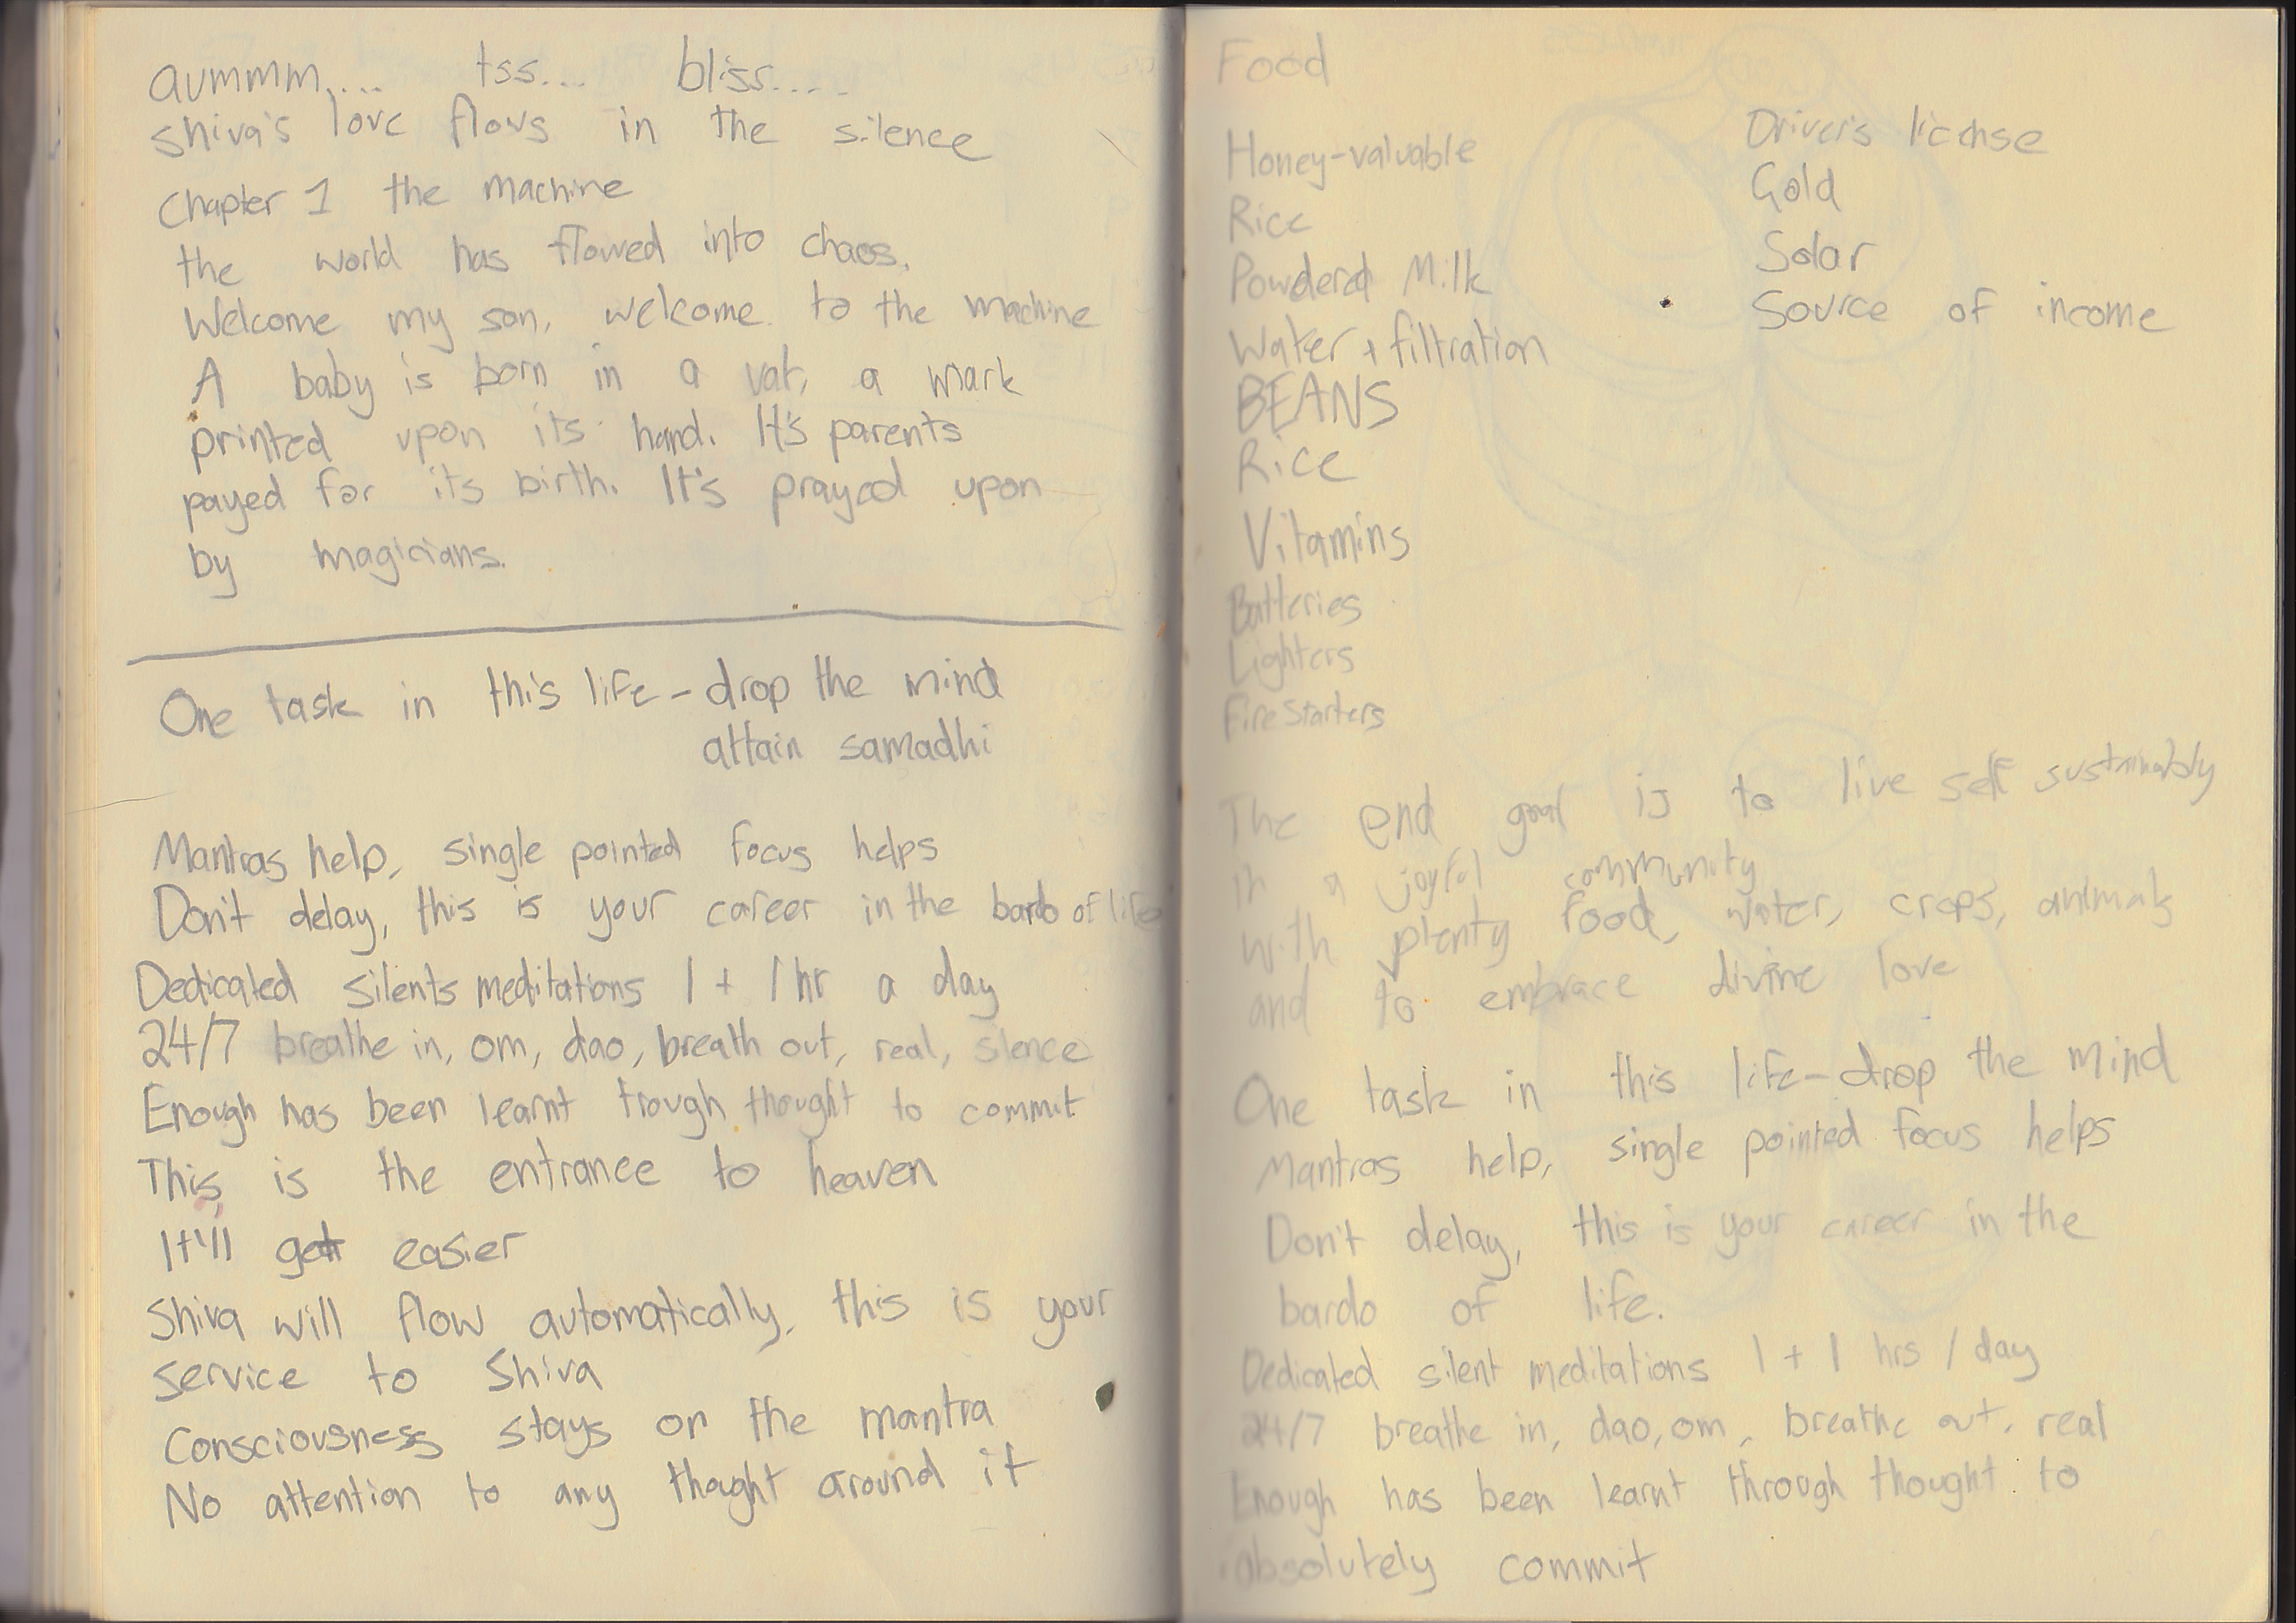 aummm.... tss... bliss.....
shiva's love flows in the silence
Chapter 1 the machine
the world has flowed into chaos.
Welcome my son, welcome to the machine
A baby is born in a vat, a mark
printed upon its hand. It's parents
payed for its birth. It's prayed upon
by magicians.
One task in this life - drop the mind
attain samadhi
Mantras help, single pointed focus helps
Don't delay, this is your career in the bardo of life
Dedicated silents meditations 1 + 1 hr a day
24/7 breathe in, om, dao, breath out, real, silence
Enough has been learnt trough thought to commit
This is the entrance to heaven
It'll get easier
Shiva will flow automatically, this is your
service to Shiva
Consciousness stays on the mantra
No attention to any thought around it
Food
Honey-valuable
Rice
Powdered Milk
Water + filtration
BEANS
Rice
Vitamins
Batteries
Lighters
Fire Starters
Driver's license
Gold
Solar
Source of income
The end goal is to live self sustainably
in a joyful community
with plenty food, water, crops, animals
and to embrace divine love
One task in this life - drop the mind
Mantras help, single pointed focus helps
Don't delay, this is your career in the
bardo of life.
Dedicated silent meditations 1 + 1 hrs / day
24/7 breathe in, dao, om, breathe out, real
Enough has been learnt through thought to
absolutely commit